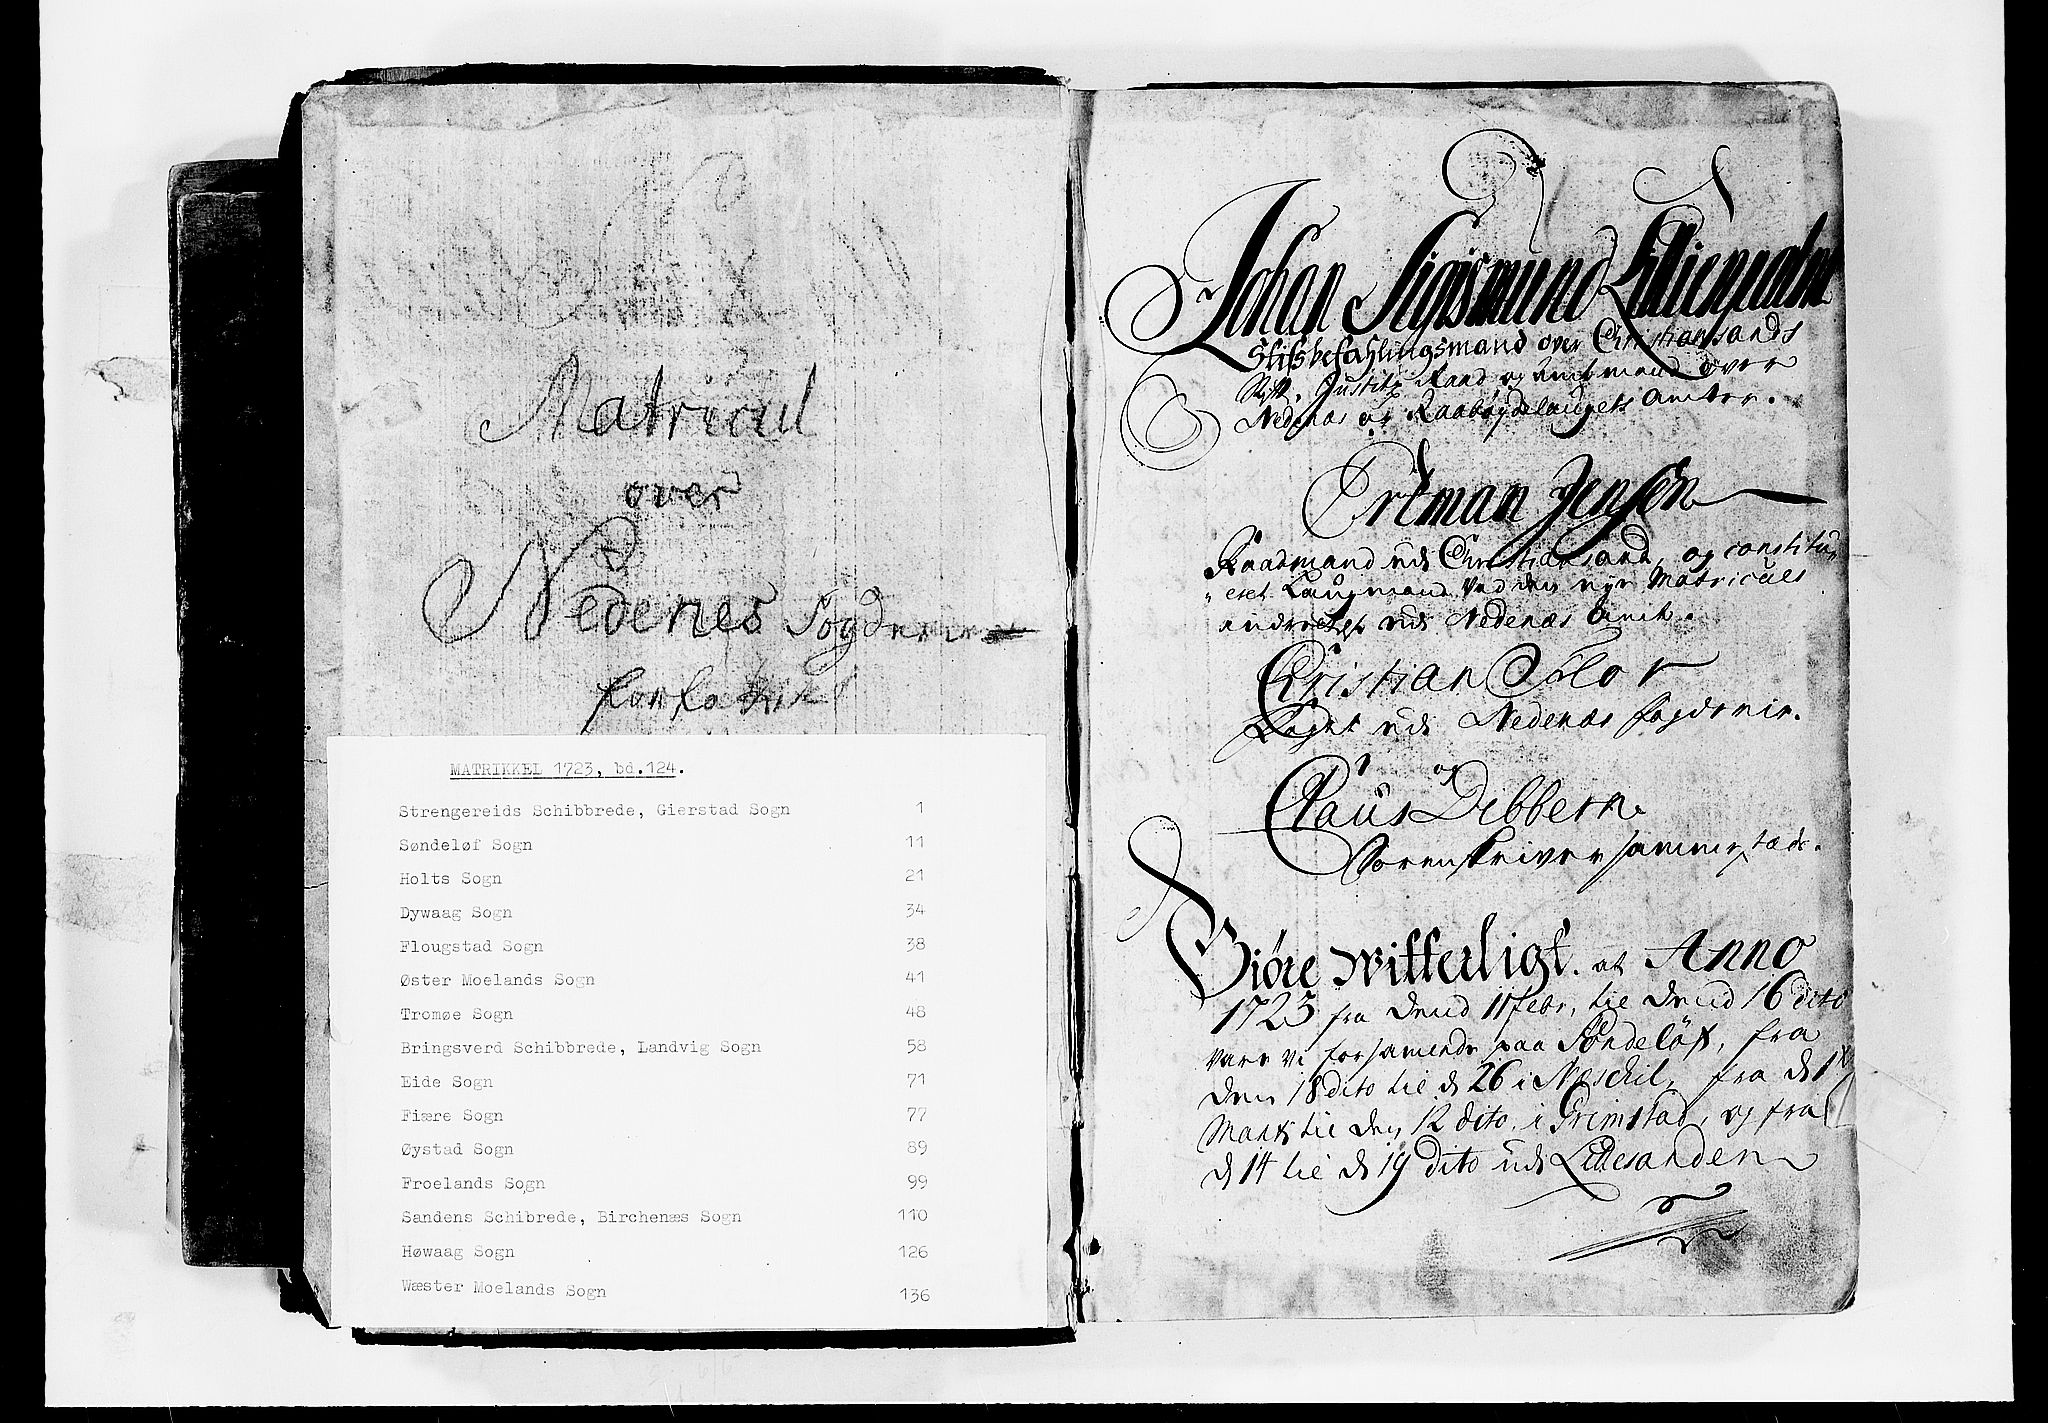 Matricul
over
Nedenes Fogderie
forfattet
MATRIKKEL 1723, bd.124.
Strengereids Schibbrede, Gierstad Sogn 1
Søndeløf Sogn 11
Holts Sogn 21
Dywaag Sogn 34
Flougstad Sogn 38
Øster Moelands Sogn 41
Tromøe Sogn 48
Bringsverd Schibbrede, Landvig Sogn 58
Eide Sogn 71
Fiære Sogn 77
Øystad Sogn 89
Froelands Sogn 99
Sandens Schibrede, Birchenæs Sogn 110
Høwaag Sogn 126
Wæster Moelands Sogn 136
Johan Sigismund Lillienpalm
Stifsbefahlingsmand over Christiansands
Stift, Justitz Raad og Amtmand over
Nedenæs og Raabøydelaugets Amter.
Ortman Jensøn
Raadmand udi Christiansand, og constitu
eret Laugmand ved den nye Matriculs
indretning udi Nedenæs Amt.
Christian Flor
Foget udi Nedenæs fogderie.
og
Claus Dibbern
Sorenskriver sammestæds.
Giøre witterligt. at Anno
1723 fra dend 11 febr, til dend 16 dito
vare vi forsamlede paa Søndeløf, fra
den 18 dito til d 26 i Næschil, fra d 1
Marts til den 12 dito, i Grimstad, og fra
d 14 til d 19 dito udi Lillesanden